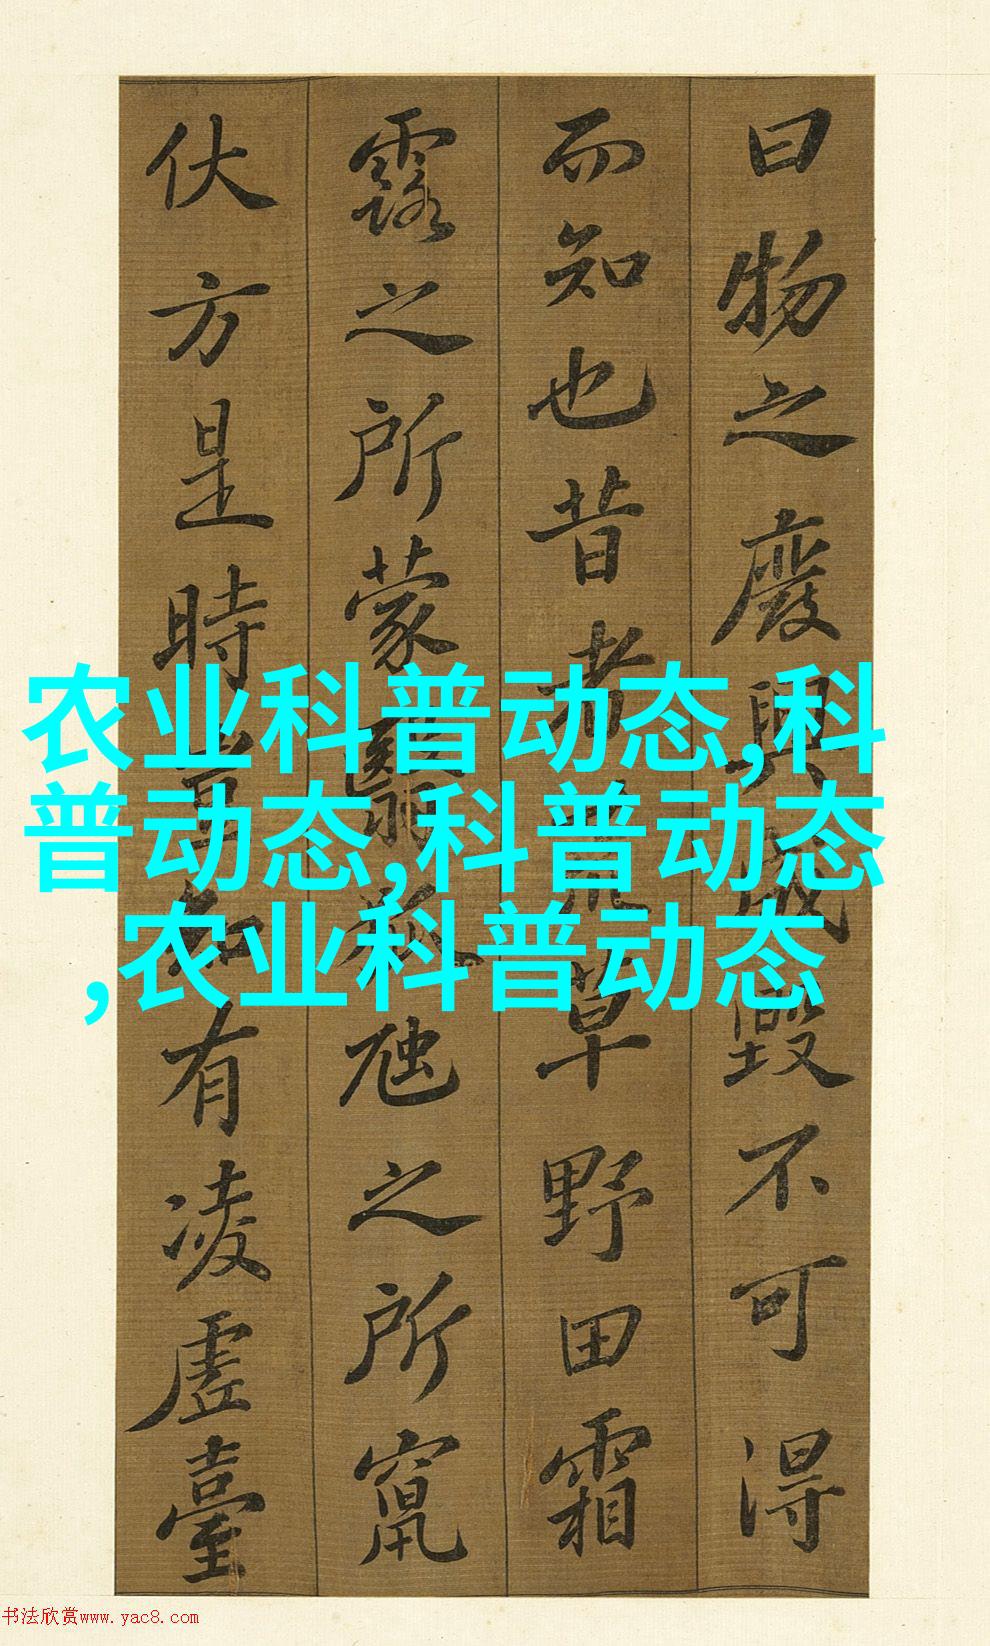 曰物之廢興成毀不可得
而知也昔者荒草野田霜
露之所蒙翳狐虺之所竄
伏方是時豈知有凌虛臺
农业科普动态,科
普动态,科普动态
,农业科普动态
书法欣赏www.yac8.com